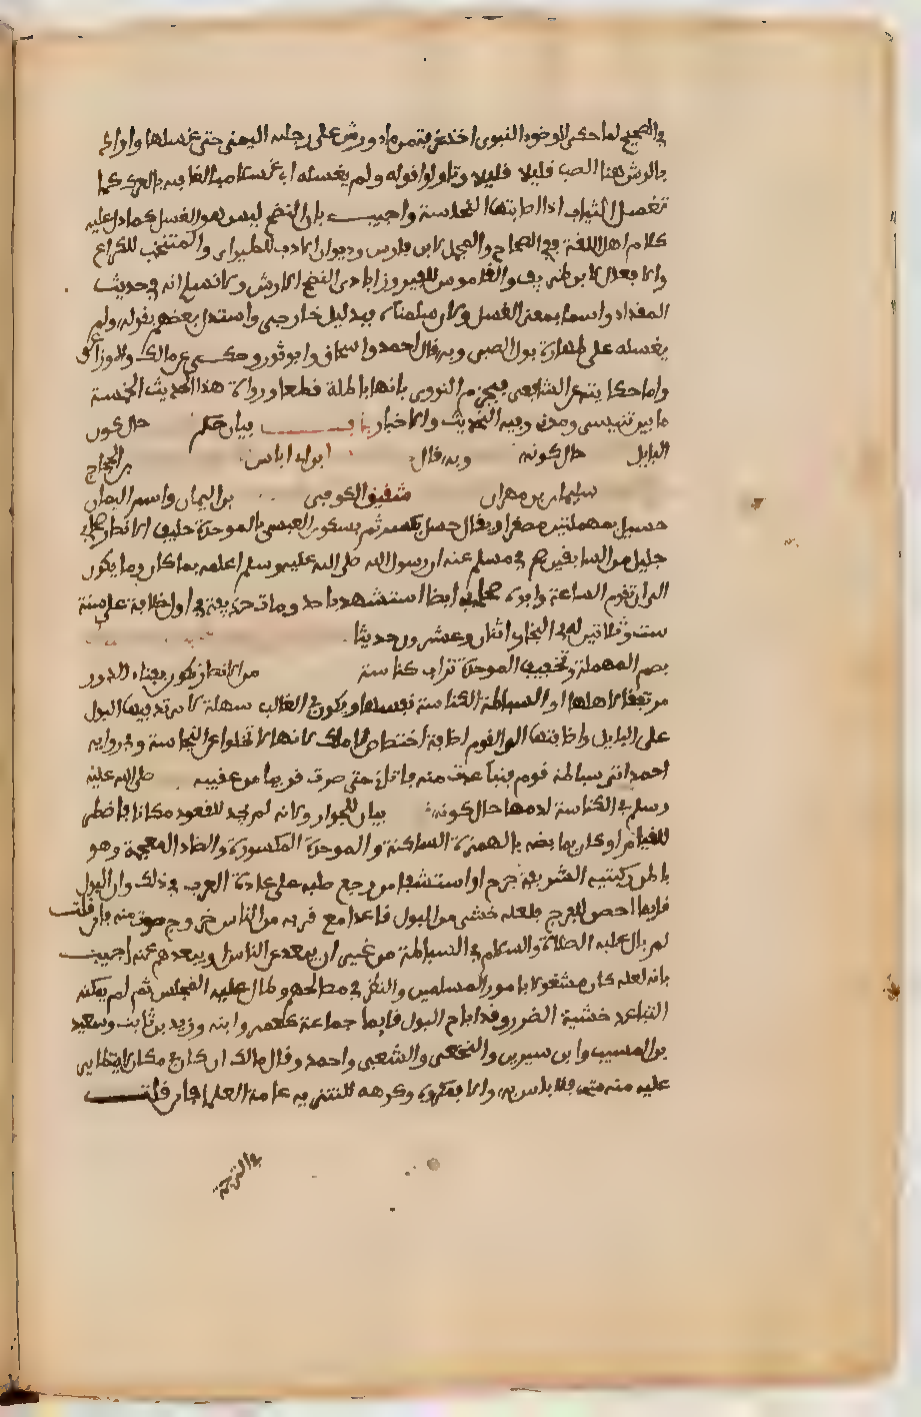 في الصحيح لما حكى الوضوء النبوي اخذ غرفة من ماء ورش على رجله اليمنى حتى غسلها واراد
بالرش هنا الصب قليلا قليلا وتاولوا قوله ولم يغسله اي غسلا مبالغا فيه بالعرك كما
تغسل الثياب اذا اصابتها النجاسة واجيب بان النضح ليس هو الغسل كما دل عليه
كلام اهل اللغة ففي الصحاح والمجمل لابن فارس وديوان الادب للفارابي والمنتخب للكراع
والافعال لابن طريف والقاموس للفيروزابادي النضح الرش ولا نسلم انه في حديث
المقداد واسما بمعنى الغسل ولان سلمناه فبدليل خارجي واستدل بعضهم بقوله ولم
يغسله على طهارة بول الصبي وبه قال احمد واسحاق وابو ثور وحكى عن مالك والاوزاعي
واما حكايته عن الشافعي فيجزم النووي بانها باطلة قطعا ورواة هذا الحديث الخمسة
ما بين تنيسي ومدني وفيه التحديث والاخبار باب بيان حكم حال كون
البايل حال كونه وبه قال ابن ابي اياس بن الحجاج
سليمان بن مهران شقيق الكوفي بن اليمان واسم اليمان
حسيل بمهملتين مصغرا ويقال حسل بكسر ثم بسكون العبسي بالموحدة حليف الانصار صحابي
جليل من السابقين صح في مسلم عنه ان رسول الله صلى الله عليه وسلم اعلمه بما كان وما يكون
الى ان تقوم الساعة وابوه صحابي ايضا استشهد باحد ومات حذيفة في اول خلافة علي سنة
ست وثلاثين له في البخاري اثنان وعشرون حديثا
بضم المهملة وتخفيف الموحدة تراب كناسة من الانصار تكون بفناء الدور
مرتفقا لاهلها او السباطة الكناسة نفسها ويكون في الغالب سهلة لا يرتد فيها البول
على البايل واضافتها الى القوم اضافة اختصاص لا ملك لانها لا تخلوا عن النجاسة وفي رواية
احمد اتى سباطة قوم فتباعدت منه فادناني حتى صرت قريبا من عقبيه صلى الله عليه
وسلم في الكناسة لدمثها حال كونه بيان للجواز ولانه لم يجد للقعود مكانا فاضطر
للقيام او كان بمابضه بالهمزة الساكنة والموحدة المكسورة والضاد المعجمة وهو
باطن ركبتيه الشريفة جرح او استشفا من وجع صلبه على عادة العرب في ذلك وان البول
قايما احصن للفرج فلعله خشي من البول قاعدا مع قربه من الناس خروج صوت منه فان قلت
لم بال عليه الصلاة والسلام في السباطة من غير ان يبعد عن الناس او يبعدهم عنه اجيب
بانه لعله كان مشغولا بامور المسلمين والنظر في مصالحهم وطال عليه المجلس ثم لم يمكنه
التباعد خشية الضرر وقد اباح البول قايما جماعة كعمر وابنه وزيد بن ثابت وسعيد
بن المسيب وابن سيرين والنخعي والشعبي واحمد وقال مالك ان كان في مكان لا يتطاير
عليه منه شي فلا باس به والا فمكروه وكرهه للتنزيه عامة العلما فان قلت
في الترجمة